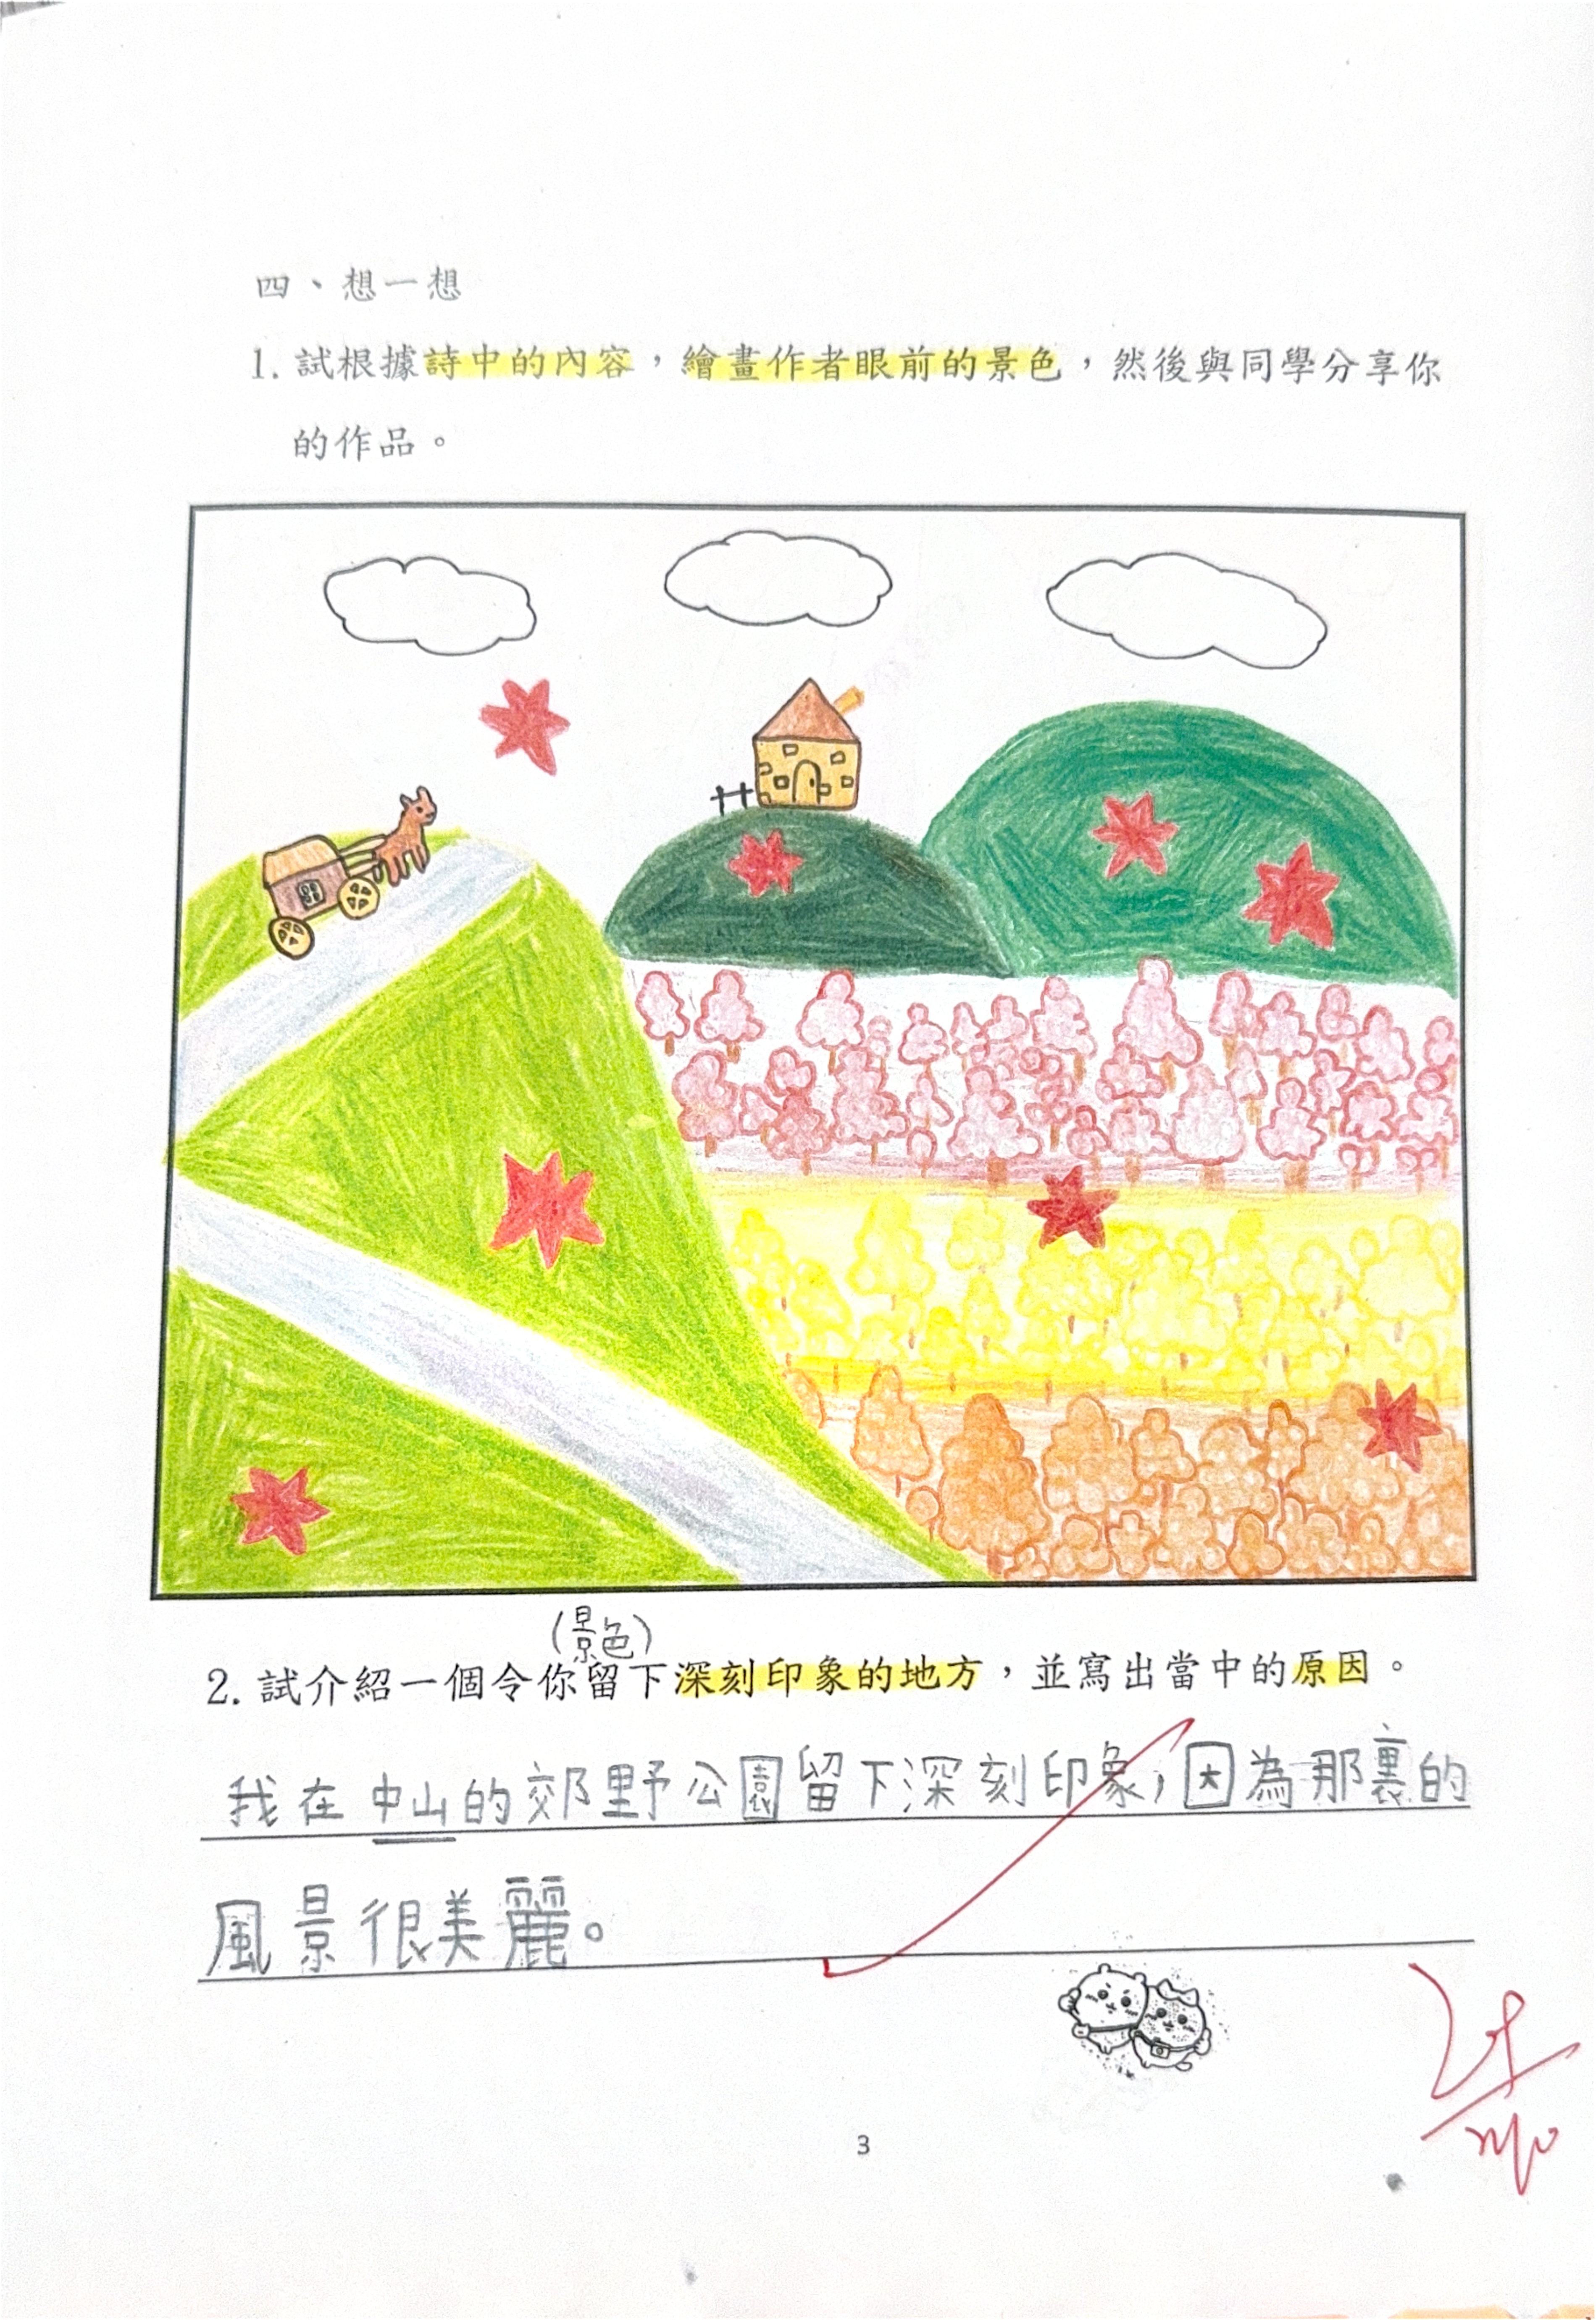 四、想一想
1. 試根據詩中的內容，繪畫作者眼前的景色，然後與同學分享你
的作品。
(景色)
2. 試介紹一個令你留下深刻印象的地方，並寫出當中的原因。
我在中山的郊野公園留下深刻印象，因為那裏的
風景很美麗。
3